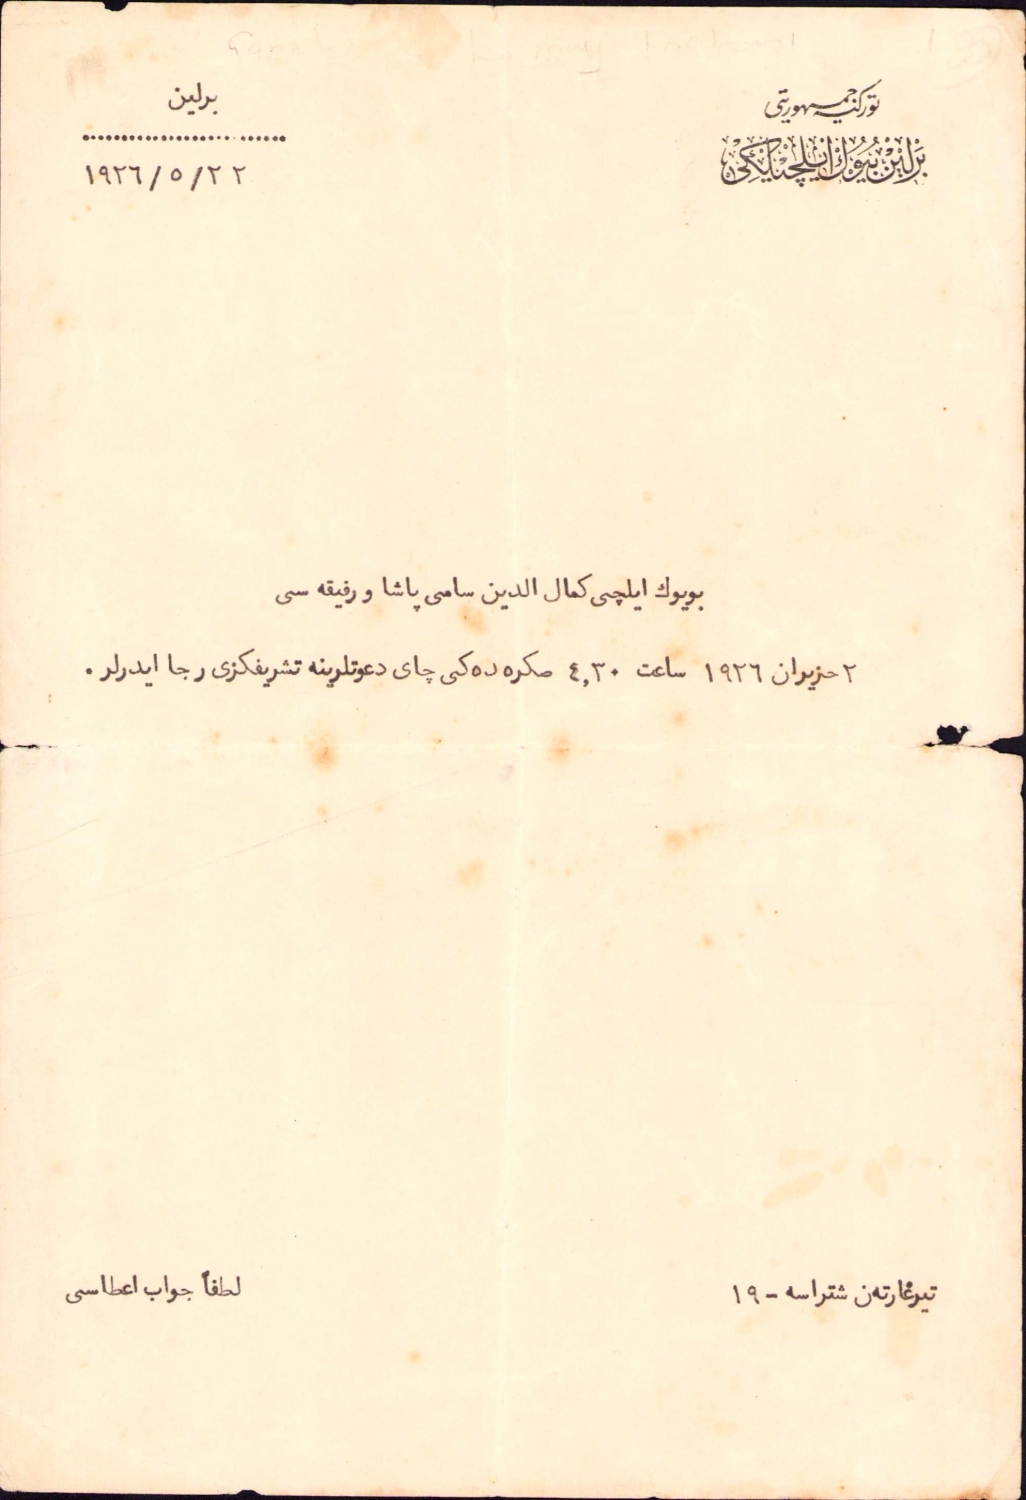 توركیه جمهوریتی
برلین بیوك ایلچیلكی
برلین
٢٢/٥/١٩٢٦
بویوك ایلچی كمال الدین سامی پاشا و رفیقه سی
٢ حزیران ١٩٢٦ ساعت ٤,٣٠ صكره ده كی چای دعوتلرینه تشریفكزی رجا ایدرلر .
تیرغارته‌ن شتراسه - ١٩
لطفاً جواب اعطاسی